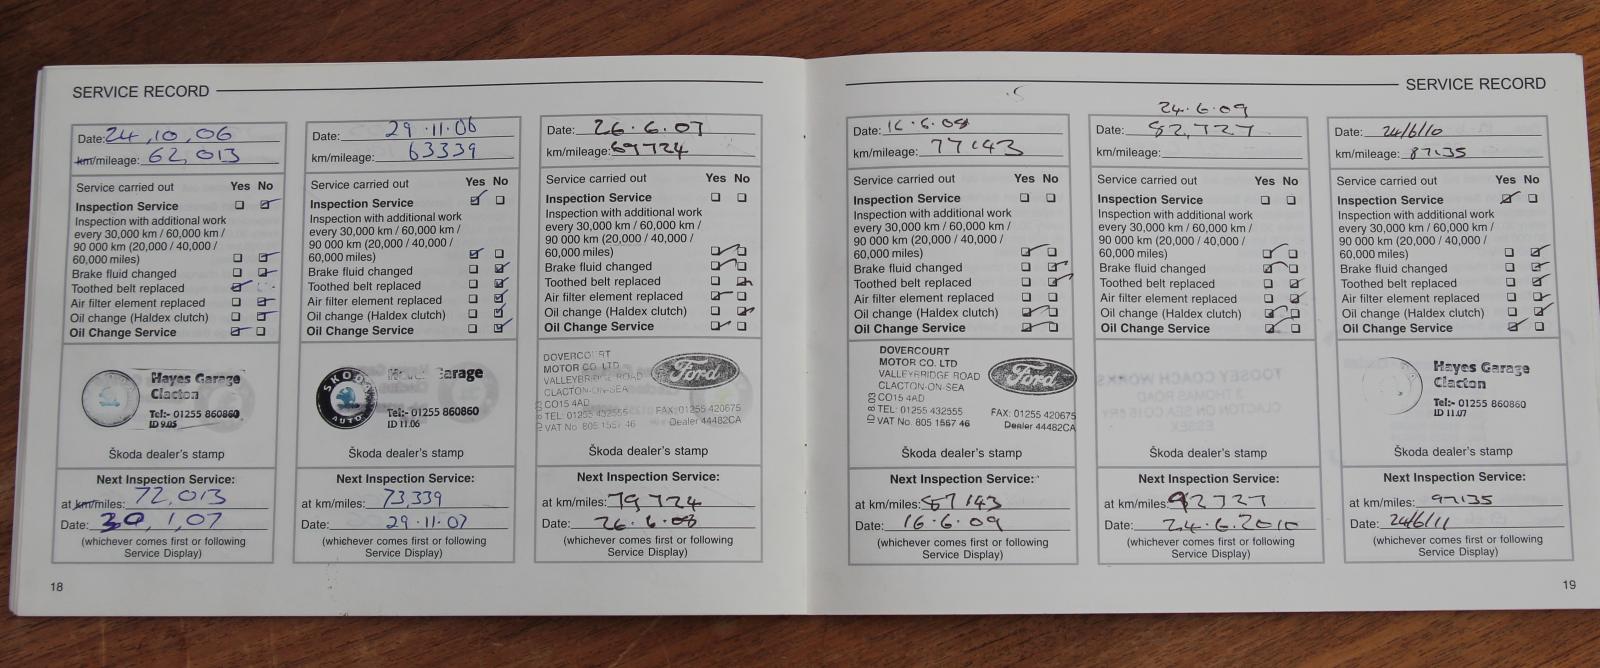 SERVICE RECORD
Date: 24,10,06
km/mileage: 62,013
Service carried out Yes No
Inspection Service
Inspection with additional work
every 30,000 km / 60,000 km /
90 000 km (20,000 / 40,000 /
60,000 miles)
Brake fluid changed
Toothed belt replaced
Air filter element replaced
Oil change (Haldex clutch)
Oil Change Service
Hayes Garage
Clacton
Tel:- 01255 860860
ID 9.05
Škoda dealer's stamp
Next Inspection Service:
at km/miles: 72,013
Date: 30,1,07
(whichever comes first or following
Service Display)
18
Date: 29.11.06
km/mileage: 63339
Service carried out Yes No
Inspection Service
Inspection with additional work
every 30,000 km / 60,000 km /
90 000 km (20,000 / 40,000 /
60,000 miles)
Brake fluid changed
Toothed belt replaced
Air filter element replaced
Oil change (Haldex clutch)
Oil Change Service
SKODA
AUTO
Garage
Tel:- 01255 860860
ID 11.06
Škoda dealer's stamp
Next Inspection Service:
at km/miles: 73,339
Date: 29.11.07
(whichever comes first or following
Service Display)
Date: 26.6.07
km/mileage: 69724
Service carried out Yes No
Inspection Service
Inspection with additional work
every 30,000 km / 60,000 km /
90 000 km (20,000 / 40,000 /
60,000 miles)
Brake fluid changed
Toothed belt replaced
Air filter element replaced
Oil change (Haldex clutch)
Oil Change Service
DOVERCOURT
MOTOR CO. LTD
VALLEYBRIDGE ROAD
CLACTON-ON-SEA
CO15 4AD
TEL: 01255 432555
VAT No. 805 1567 46
Ford
FAX: 01255 420675
Dealer 44482CA
Škoda dealer's stamp
Next Inspection Service:
at km/miles: 79724
Date: 26.6.08
(whichever comes first or following
Service Display)
SERVICE RECORD
Date: 16.6.08
km/mileage: 77143
Service carried out Yes No
Inspection Service
Inspection with additional work
every 30,000 km / 60,000 km /
90 000 km (20,000 / 40,000 /
60,000 miles)
Brake fluid changed
Toothed belt replaced
Air filter element replaced
Oil change (Haldex clutch)
Oil Change Service
DOVERCOURT
MOTOR CO. LTD
VALLEYBRIDGE ROAD
CLACTON-ON-SEA
CO15 4AD
TEL: 01255 432555
VAT No. 805 1567 46
Ford
FAX: 01255 420675
Dealer 44482CA
Škoda dealer's stamp
Next Inspection Service:
at km/miles: 87143
Date: 16.6.09
(whichever comes first or following
Service Display)
24.6.09
Date: 82,727
km/mileage:
Service carried out Yes No
Inspection Service
Inspection with additional work
every 30,000 km / 60,000 km /
90 000 km (20,000 / 40,000 /
60,000 miles)
Brake fluid changed
Toothed belt replaced
Air filter element replaced
Oil change (Haldex clutch)
Oil Change Service
Škoda dealer's stamp
Next Inspection Service:
at km/miles: 92727
Date: 24.6.2010
(whichever comes first or following
Service Display)
Date: 24/6/10
km/mileage: 87135
Service carried out Yes No
Inspection Service
Inspection with additional work
every 30,000 km / 60,000 km /
90 000 km (20,000 / 40,000 /
60,000 miles)
Brake fluid changed
Toothed belt replaced
Air filter element replaced
Oil change (Haldex clutch)
Oil Change Service
Hayes Garage
Clacton
Tel:- 01255 860860
ID 11.07
Škoda dealer's stamp
Next Inspection Service:
at km/miles: 97135
Date: 24/6/11
(whichever comes first or following
Service Display)
19